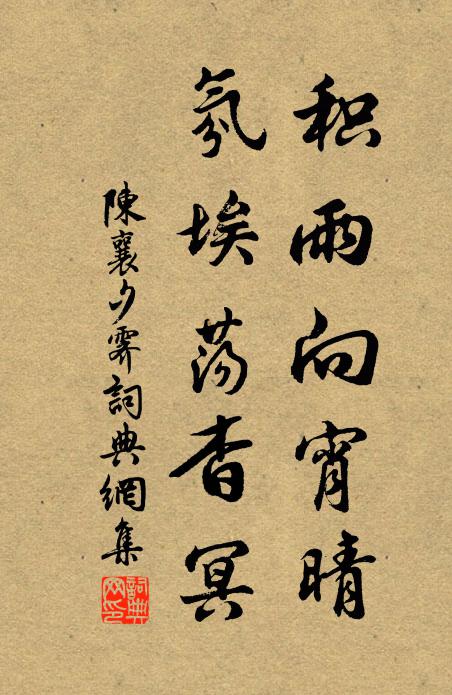 积雨向宵晴
氛埃荡杳冥
陳襄夕霽詞典網集
詞典网印